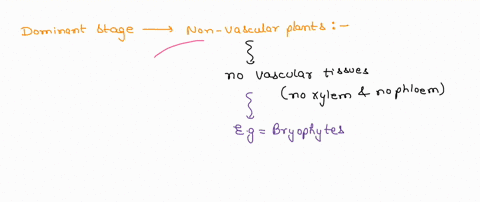 Dominant stage → Non-vascular plants :-
no vascular tissues
(no xylem & no phloem)
Eg = Bryophytes